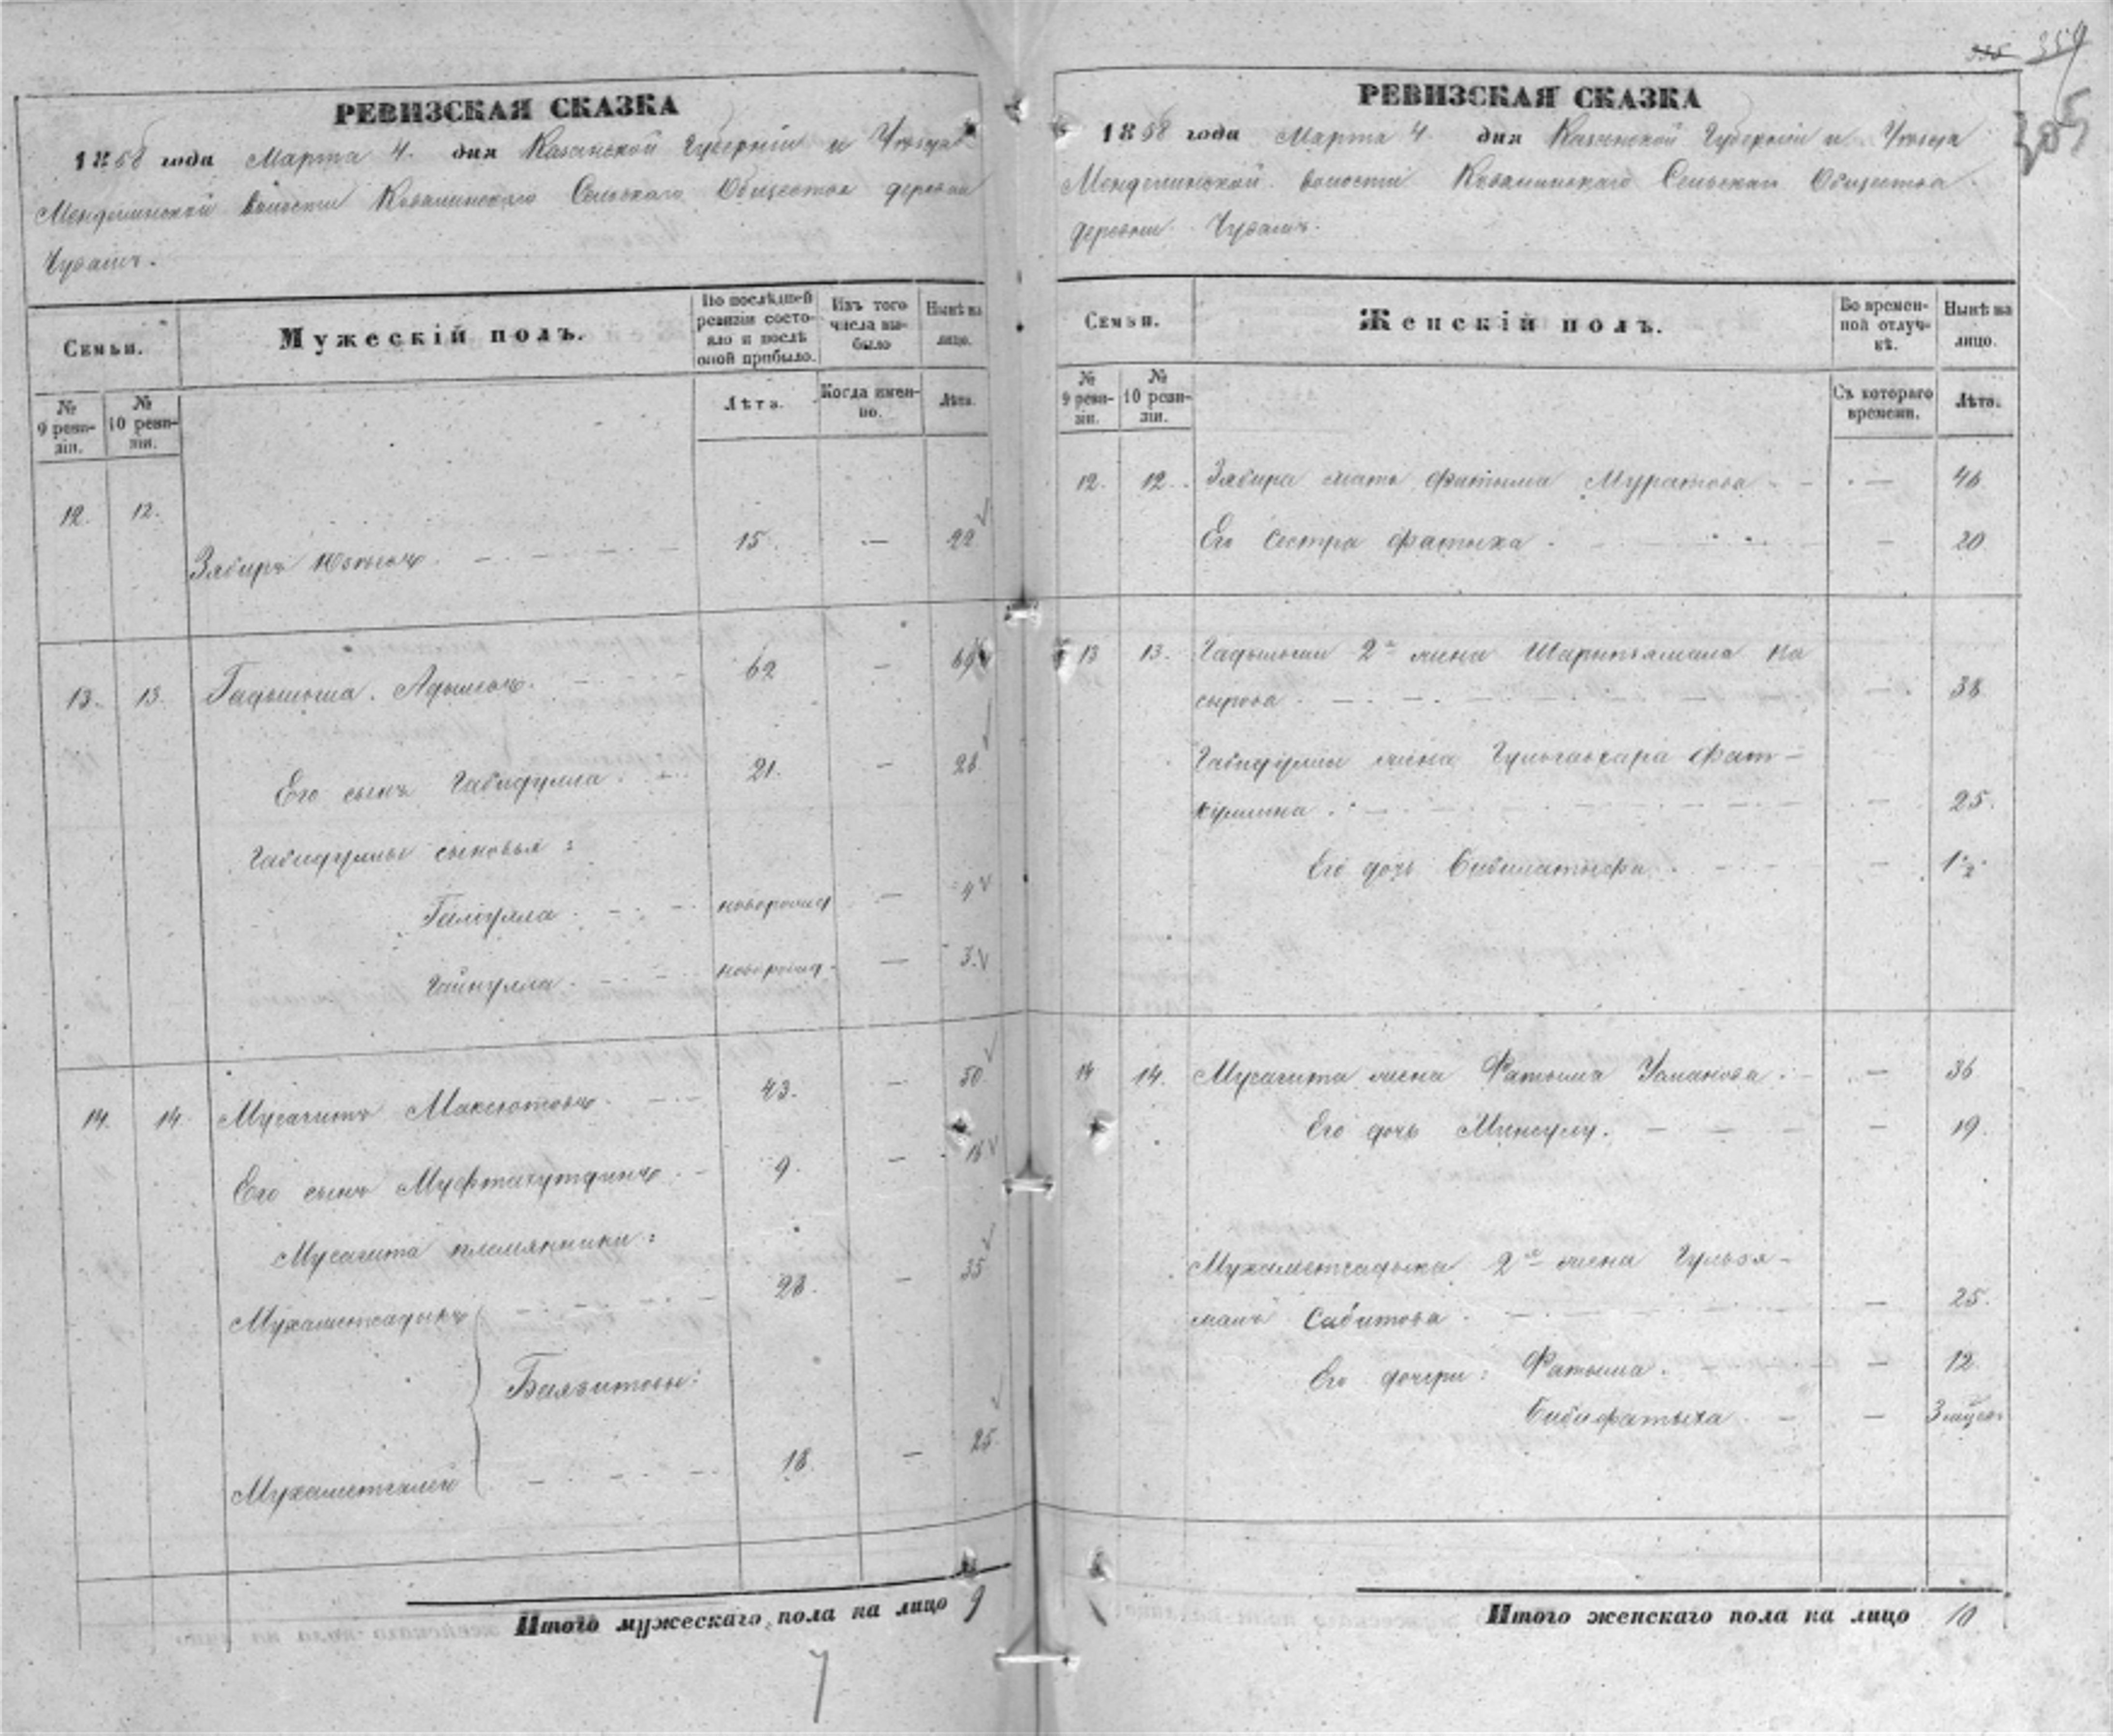 РЕВИЗСКАЯ СКАЗКА
1858 года Марта 4. дня Казанской Губерніи и Уѣзда
Менделинской волости Ковалинскаго Сельскаго Общества деревни
Чувашъ.
Семьи.
Мужескій полъ.
По послѣдней ревизіи состояло и послѣ оной прибыло.
Изъ того числа выбыло
Нынѣ на лицо.
№ 9 ревизіи.
№ 10 ревизіи.
Лѣта.
Когда именно.
Лѣта.
12. 12.
Зябиръ 15. — 22
13. 13. Гадыльша Адыловъ. 62 — 69
Его сынъ Габидулла 21. — 28
Габидуллы сыновья:
Галіулла новорожд — 4
Гайнулла новорожд. — 3.
14. 14. Мусагитъ Максютовъ. 43. — 50.
Его сынъ Муфтахутдинъ 9. — 16
Мусагита племянники:
Мухаметсадыкъ 28. — 35
Баязитовы:
Мухаметгалей 18. — 25.
Итого мужескаго пола на лицо 9
7
335 359
305
РЕВИЗСКАЯ СКАЗКА
1858 года Марта 4. дня Казанской Губерніи и Уѣзда
Менделинской волости Ковалинскаго Сельскаго Общества
деревни Чувашъ.
Семьи.
Женскій полъ.
Во временной отлучкѣ.
Нынѣ на лицо.
№ 9 ревизіи.
№ 10 ревизіи.
Съ котораго времени.
Лѣта.
12. 12. Зябира мать Фатыма Муратова — 46
Его сестра Фатыха — 20
13 13. Гадыльши 2я жена Шарипзямала На
сырова — 38
Габидуллы жена Гульгаухара Фат-
кулина — 25.
Его дочь Бибилатыфа — 1½.
14 14. Мусагита жена Фатыма Усманова — 36
Его дочь Мингулу. — 19.
Мухаметсадыка 2я жена Гульзя-
малъ Сабитова — 25.
Его дочери: Фатыма. — 12.
Бибифатыха — 3 мѣся.
Итого женскаго пола на лицо 10